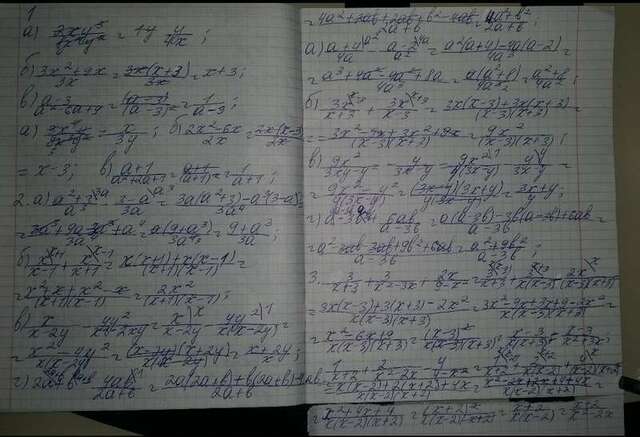 1
а) = 4y = y/4x ;
б) 3x²+9x/3x = 3x(x+3)/3x = x+3;
в) a-3/a²-6a+9 = (a-3)/(a-3)² = 1/a-3;
а) = x/3y; б) 2x²-6x/2x = 2x(x-3)/2x
= x-3; в) a+1/a²+2a+1 = a+1/(a+1)² = 1/a+1;
2. а) 3-a/3a = 3a(a²+3)-a³(3-a)
= = a(9+a³) = 9+a³/3a³;
б) x/x-1 + x/x+1 = x(x+1)+x(x-1)/(x+1)(x-1) =
= x²+x+x²-x/(x+1)(x-1) = 2x²/(x+1)(x-1) ;
в) x/x-2y - 4y²/x²-2xy = x/x-2y - 4y²/x(x-2y) =
= x²-4y²/x(x-2y) = (x-2y)(x+2y)/x(x-2y) = x+2y/x;
г) 2a+b - 4ab/2a+b = 2a(2a+b)+b(2a+b)-4ab/2a+b
= 4a²+2ab+2ab+b²-4ab/2a+b = 4a²+b²/2a+b ;
а) a+4/4a - a-2/a² = a²(a+4)-4a(a-2)/4a³ =
= a³+4a²-4a²+8a/4a³ = a(a²+8)/4a³ = a²+8/4a² ;
б) 3x/x+3 + 3x/x-3 = 3x(x-3)+3x(x+3)/(x-3)(x+3) =
= 3x²-9x+3x²+9x/(x-3)(x+3) = x²/(x-3)(x+3) ;
в) 9x²/3xy-y² - y/3x-y = 9x²/y(3x-y) - y/3x-y =
= 9x²-y²/y(3x-y) = (3x-y)(3x+y)/y(3x-y) = 3x+y/y ;
г) a-3b + 6ab/a-3b = a(a-3b)-3b(a-3b)+6ab/a-3b =
= a²-3ab-3ab+9b²+6ab/a-3b = a²+9b²/a-3b ;
3. 3/x+3 + 3/x²-3x + 2x/9-x² = 3/x+3 + 3/x(x-3) - 2x/(x-3)(x+3)
= 3x(x-3)+3(x+3)-2x²/x(x-3)(x+3) = 3x²-9x+3x+9-2x²/x(x-3)(x+3)
= x²-6x+9/x(x-3)(x+3) = (x-3)²/x(x-3)(x+3) = x-3/x(x+3) = x-3/x²+3x ;
= x(x-2)+2(x+2)+4x/x(x-2)(x+2) = x²-2x+2x+4+4x/x(x-2)(x+2) =
= x²+4x+4/x(x-2)(x+2) = (x+2)²/x(x-2)(x+2) = x+2/x(x-2) = x+2/x²-2x